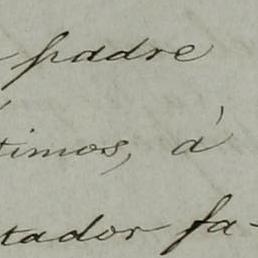 padre
timos, á
tador fa-